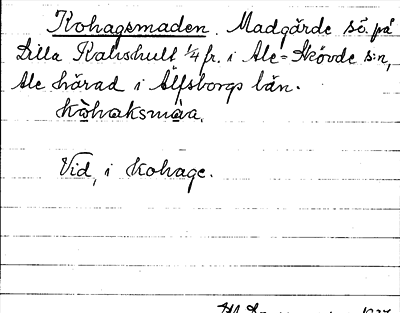 Kohagsmaden. Madgärde sö. på
Lilla Kahschult 1/4 fr. i Ale=Skövde s:n,
Ale härad i Älfsborgs län.
kòhaksmàa.
Vid, i Kohage.